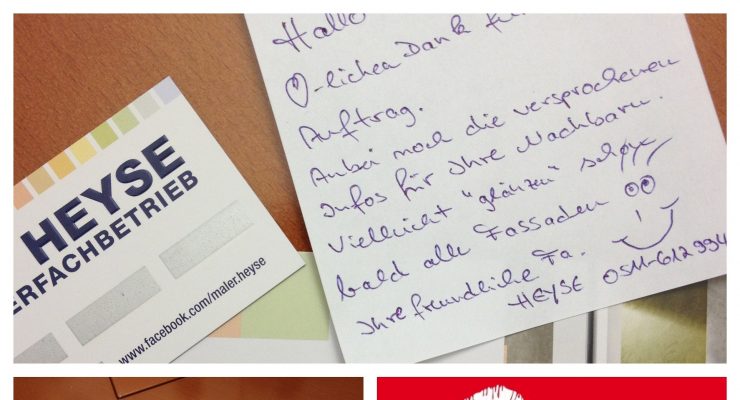 HEYSE
ERFACHBETRIEB
www.facebook.com/maler.heyse
Hallo
-lichen Dank für
Auftrag.
Anbei noch die versprochenen
Infos für Ihre Nachbarn.
Vielleicht "glänzen" schon
bald alle Fassaden
Ihre freundliche Fa.
HEYSE 0511-612994